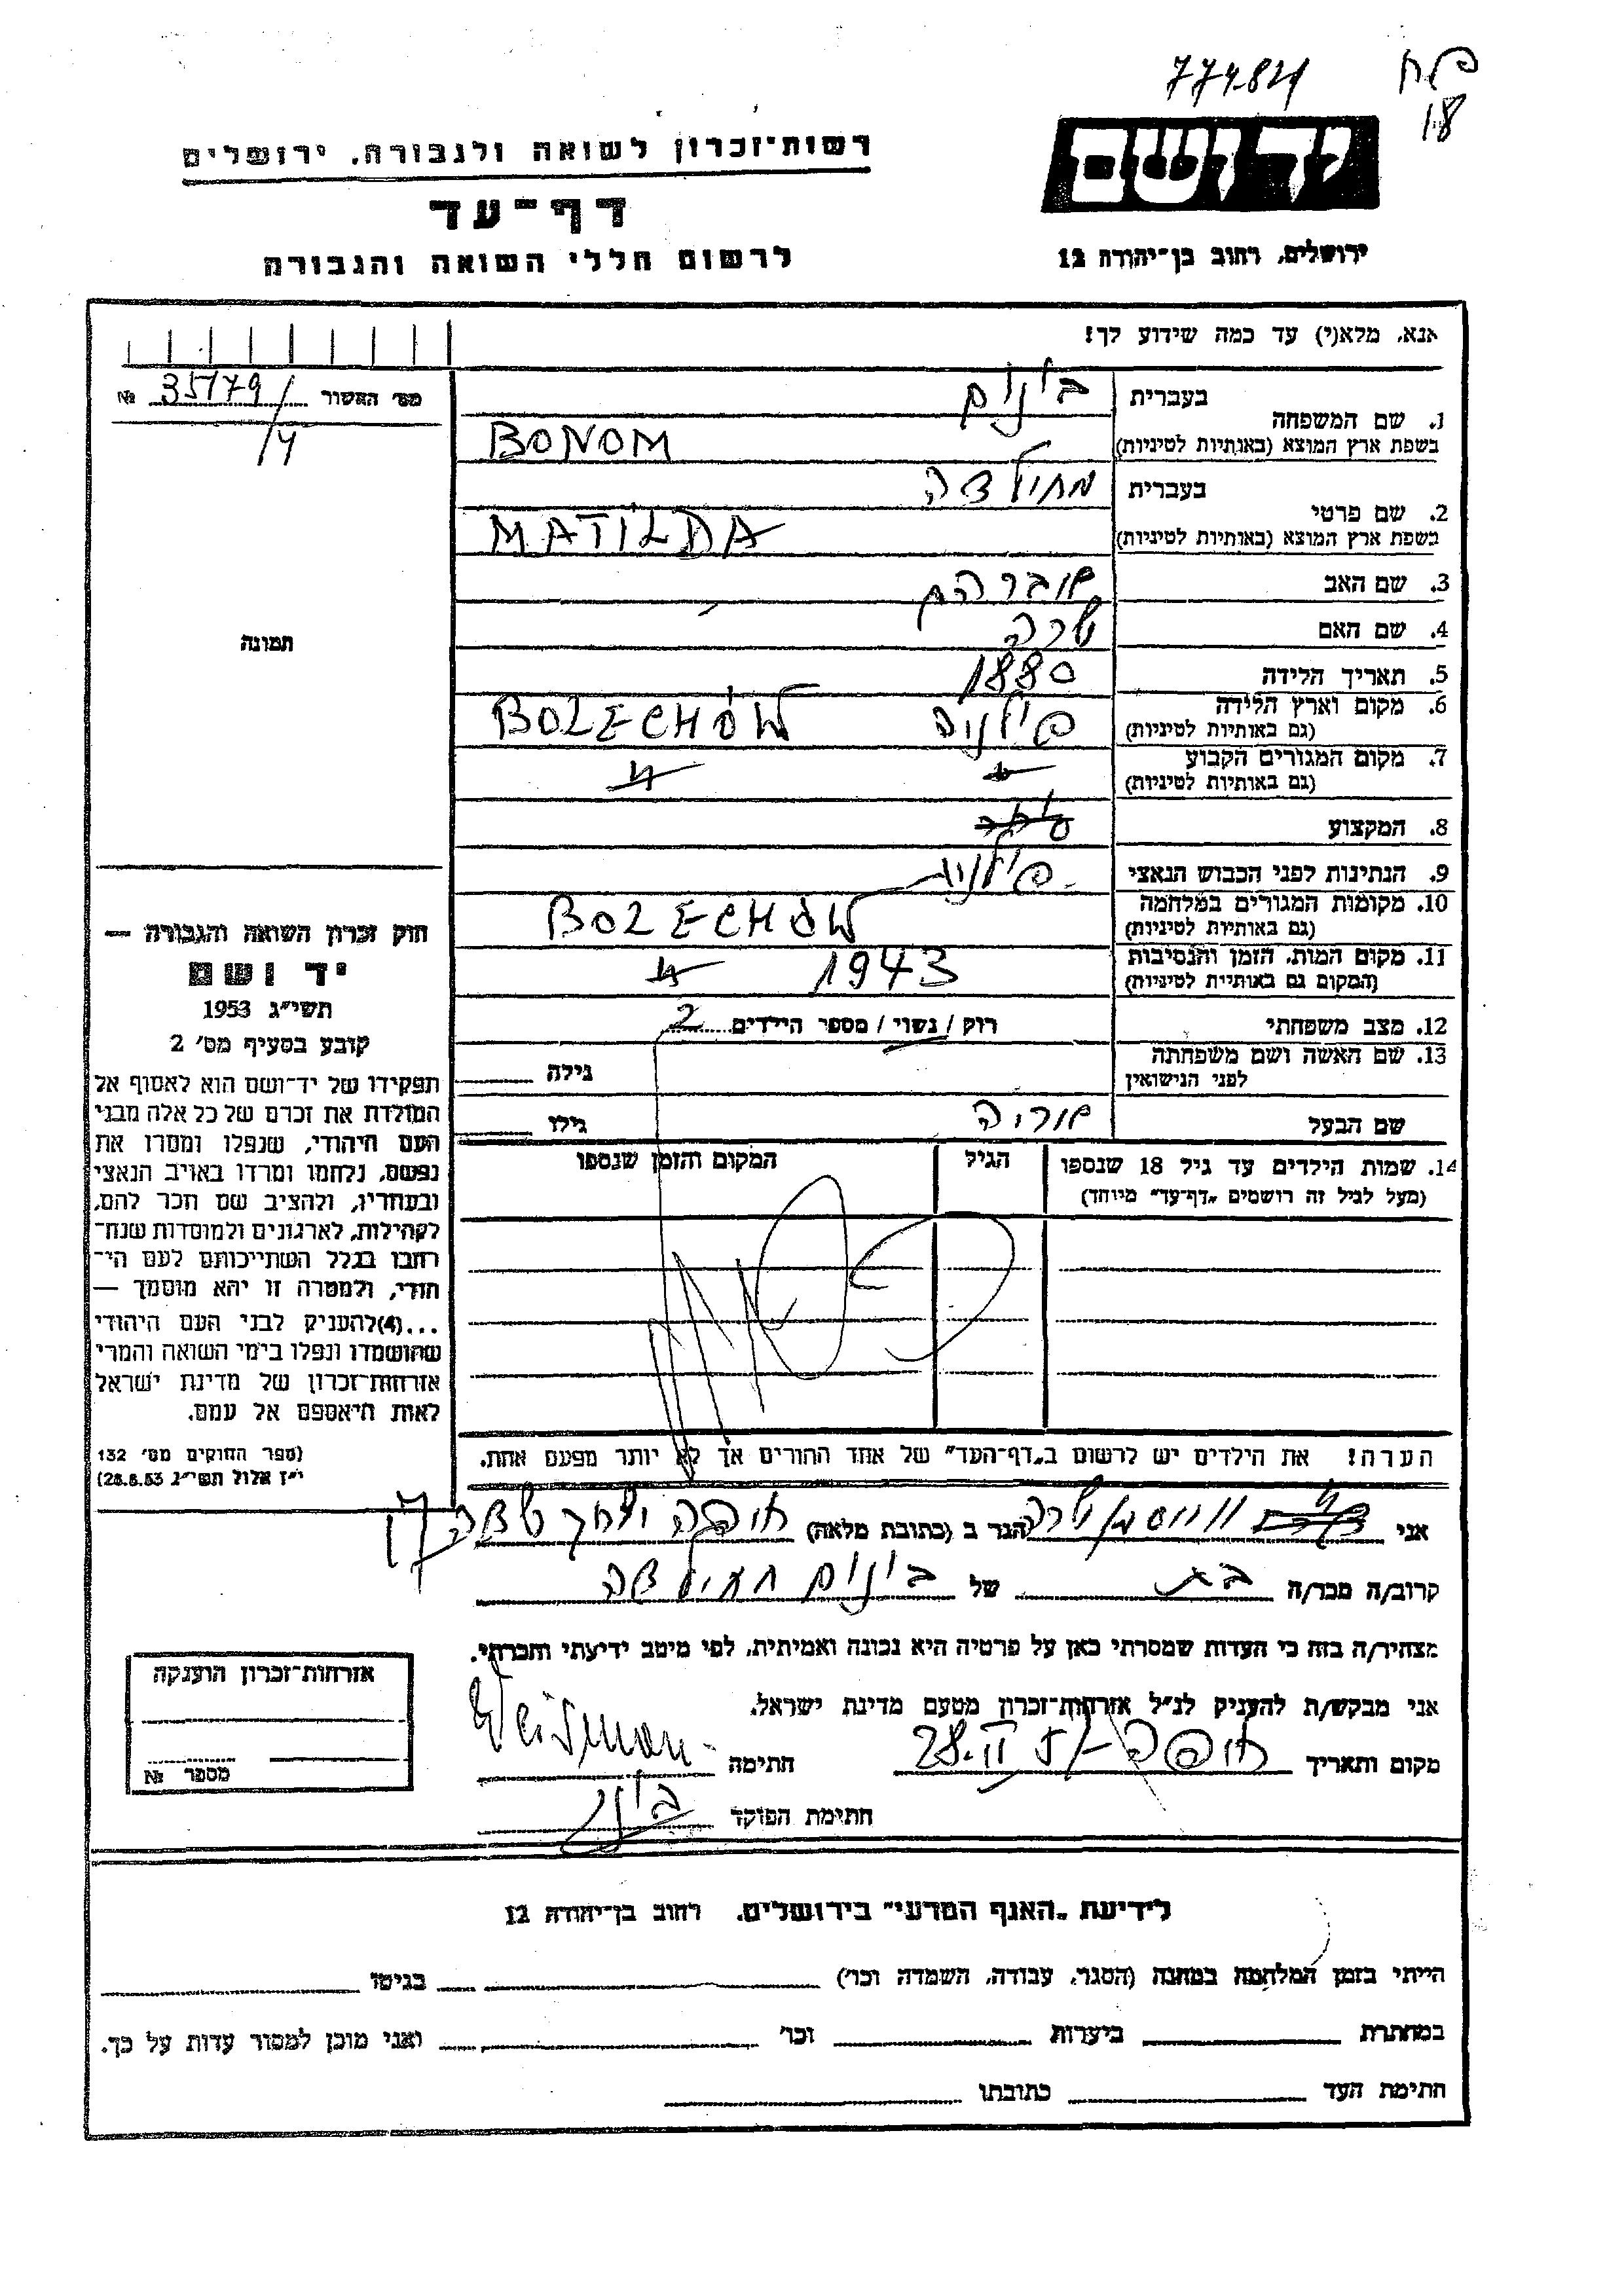 77484
18
יד ושם
ירושלים, רחוב בן־יהודה 12
רשות־זכרון לשואה ולגבורה, ירושלים
דף־עד
לרשום חללי השואה והגבורה
אנא, מלא(י) עד כמה שידוע לך!
מס׳ האשור 35179 №
/4
1. שם המשפחה
בעברית בונום
בשפת ארץ המוצא (באותיות לטיניות) BONOM
2. שם פרטי
בעברית מתילדה
בשפת ארץ המוצא (באותיות לטיניות) MATILDA
3. שם האב אברהם
4. שם האם שרה
5. תאריך הלידה 1880
6. מקום וארץ הלידה פולניה BOLECHÓW
(גם באותיות לטיניות)
7. מקום המגורים הקבוע
(גם באותיות לטיניות)
8. המקצוע
9. הנתינות לפני הכבוש הנאצי פולניה
10. מקומות המגורים במלחמה BOLECHÓW
(גם באותיות לטיניות)
11. מקום המות, הזמן והנסיבות 1943
(המקום גם באותיות לטיניות)
12. מצב משפחתי רוק / נשוי / מספר הילדים 2
13. שם האשה ושם משפחתה גילה
לפני הנישואין
שם הבעל גילו
14. שמות הילדים עד גיל 18 שנספו הגיל המקום והזמן שנספו
(מעל לגיל זה רושמים „דף־עד״ מיוחד)
הערה! את הילדים יש לרשום ב„דף־העד״ של אחד ההורים אך לא יותר מפעם אחת.
תמונה
חוק זכרון השואה והגבורה —
יד ושם
תשי״ג 1953
קובע בסעיף מס׳ 2
תפקידו של יד־ושם הוא לאסוף אל
המולדת את זכרם של כל אלה מבני
העם היהודי, שנפלו ומסרו את
נפשם, נלחמו ומרדו באויב הנאצי
ובעוזריו, ולהציב שם וזכר להם,
לקהילות, לארגונים ולמוסדות שנח־
רבו בגלל השתייכותם לעם הי־
הודי, ולמטרה זו יהא מוסמך —
...(4)להעניק לבני העם היהודי
שהושמדו ונפלו בימי השואה והמרי
אזרחות־זכרון של מדינת ישראל
לאות היאספם אל עמם.
(ספר החוקים מס׳ 132
י״ז אלול תשי״ג 28.8.53)
אני וייסמן שרה הגר ב (כתובת מלאה) חיפה
קרוב/ה מכר/ה בת של בונום מתילדה
מצהיר/ה בזה כי העדות שמסרתי כאן על פרטיה היא נכונה ואמיתית, לפי מיטב ידיעתי והכרתי.
אני מבקש/ת להעניק לנ״ל אזרחות־זכרון מטעם מדינת ישראל.
מקום ותאריך חיפה 28.II חתימה Weisman
חתימת הפוקד
אזרחות־זכרון הוענקה
מספר №
לידיעת „האגף המדעי״ בירושלים, רחוב בן־יהודה 12
הייתי בזמן המלחמה במחנה (הסגר, עבודה, השמדה וכו׳) בגיטו
במחתרת ביערות וכו׳ ואני מוכן למסור עדות על כך.
חתימת העד כתובתו